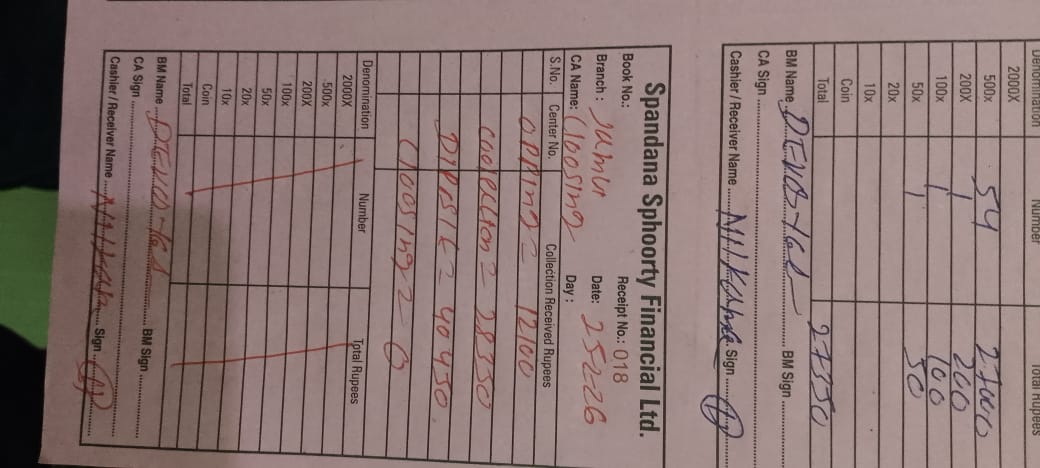 Denomination Number Total Rupees
2000X
500x 54 27000
200X 1 200
100x 1 100
50x 1 50
20x
10x
Coin
Total 27350
BM Name BM Sign
CA Sign
Cashier / Receiver Name Sign
Spandana Sphoorty Financial Ltd.
Book No.: Receipt No.: 018
Branch : Jamui Date: 25-2-26
CA Name: Cloosing Day :
S.No. Center No. Collection Received Rupees
= 12100
= 28350
= 40450
Cloosing = 0
Denomination Number Total Rupees
2000X
500x
200X
100x
50x
20x
10x
Coin
Total
BM Name BM Sign
CA Sign
Cashier / Receiver Name Sign